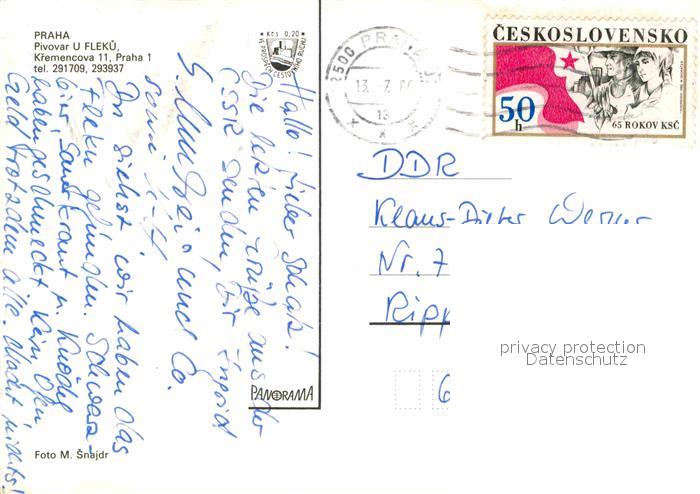 PRAHA
Pivovar U FLEKŮ,
Křemencova 11, Praha 1
tel. 291709, 293937
Kčs 0,20
VE PROSPĚCH CESTOVNÍHO RUCHU
Hallo! Lieber Schatz!
Die besten Grüße aus der
ČSSR senden, wir Ingrid
und Co.
Du siehst wir haben das
Fleku gefunden. Schwarz-
bier Sauerkraut u. Knödel
haben geschmeckt. Kein
Geld trotzdem alle. Macht nichts!
Foto M. Šnajdr
PANORAMA
500 PRA
13. 7.
13
ČESKOSLOVENSKO
50
h
65 ROKOV KSČ
DDR
Klaus-Dieter Werner
Nr. 7
Ripp
6
privacy protection
Datenschutz